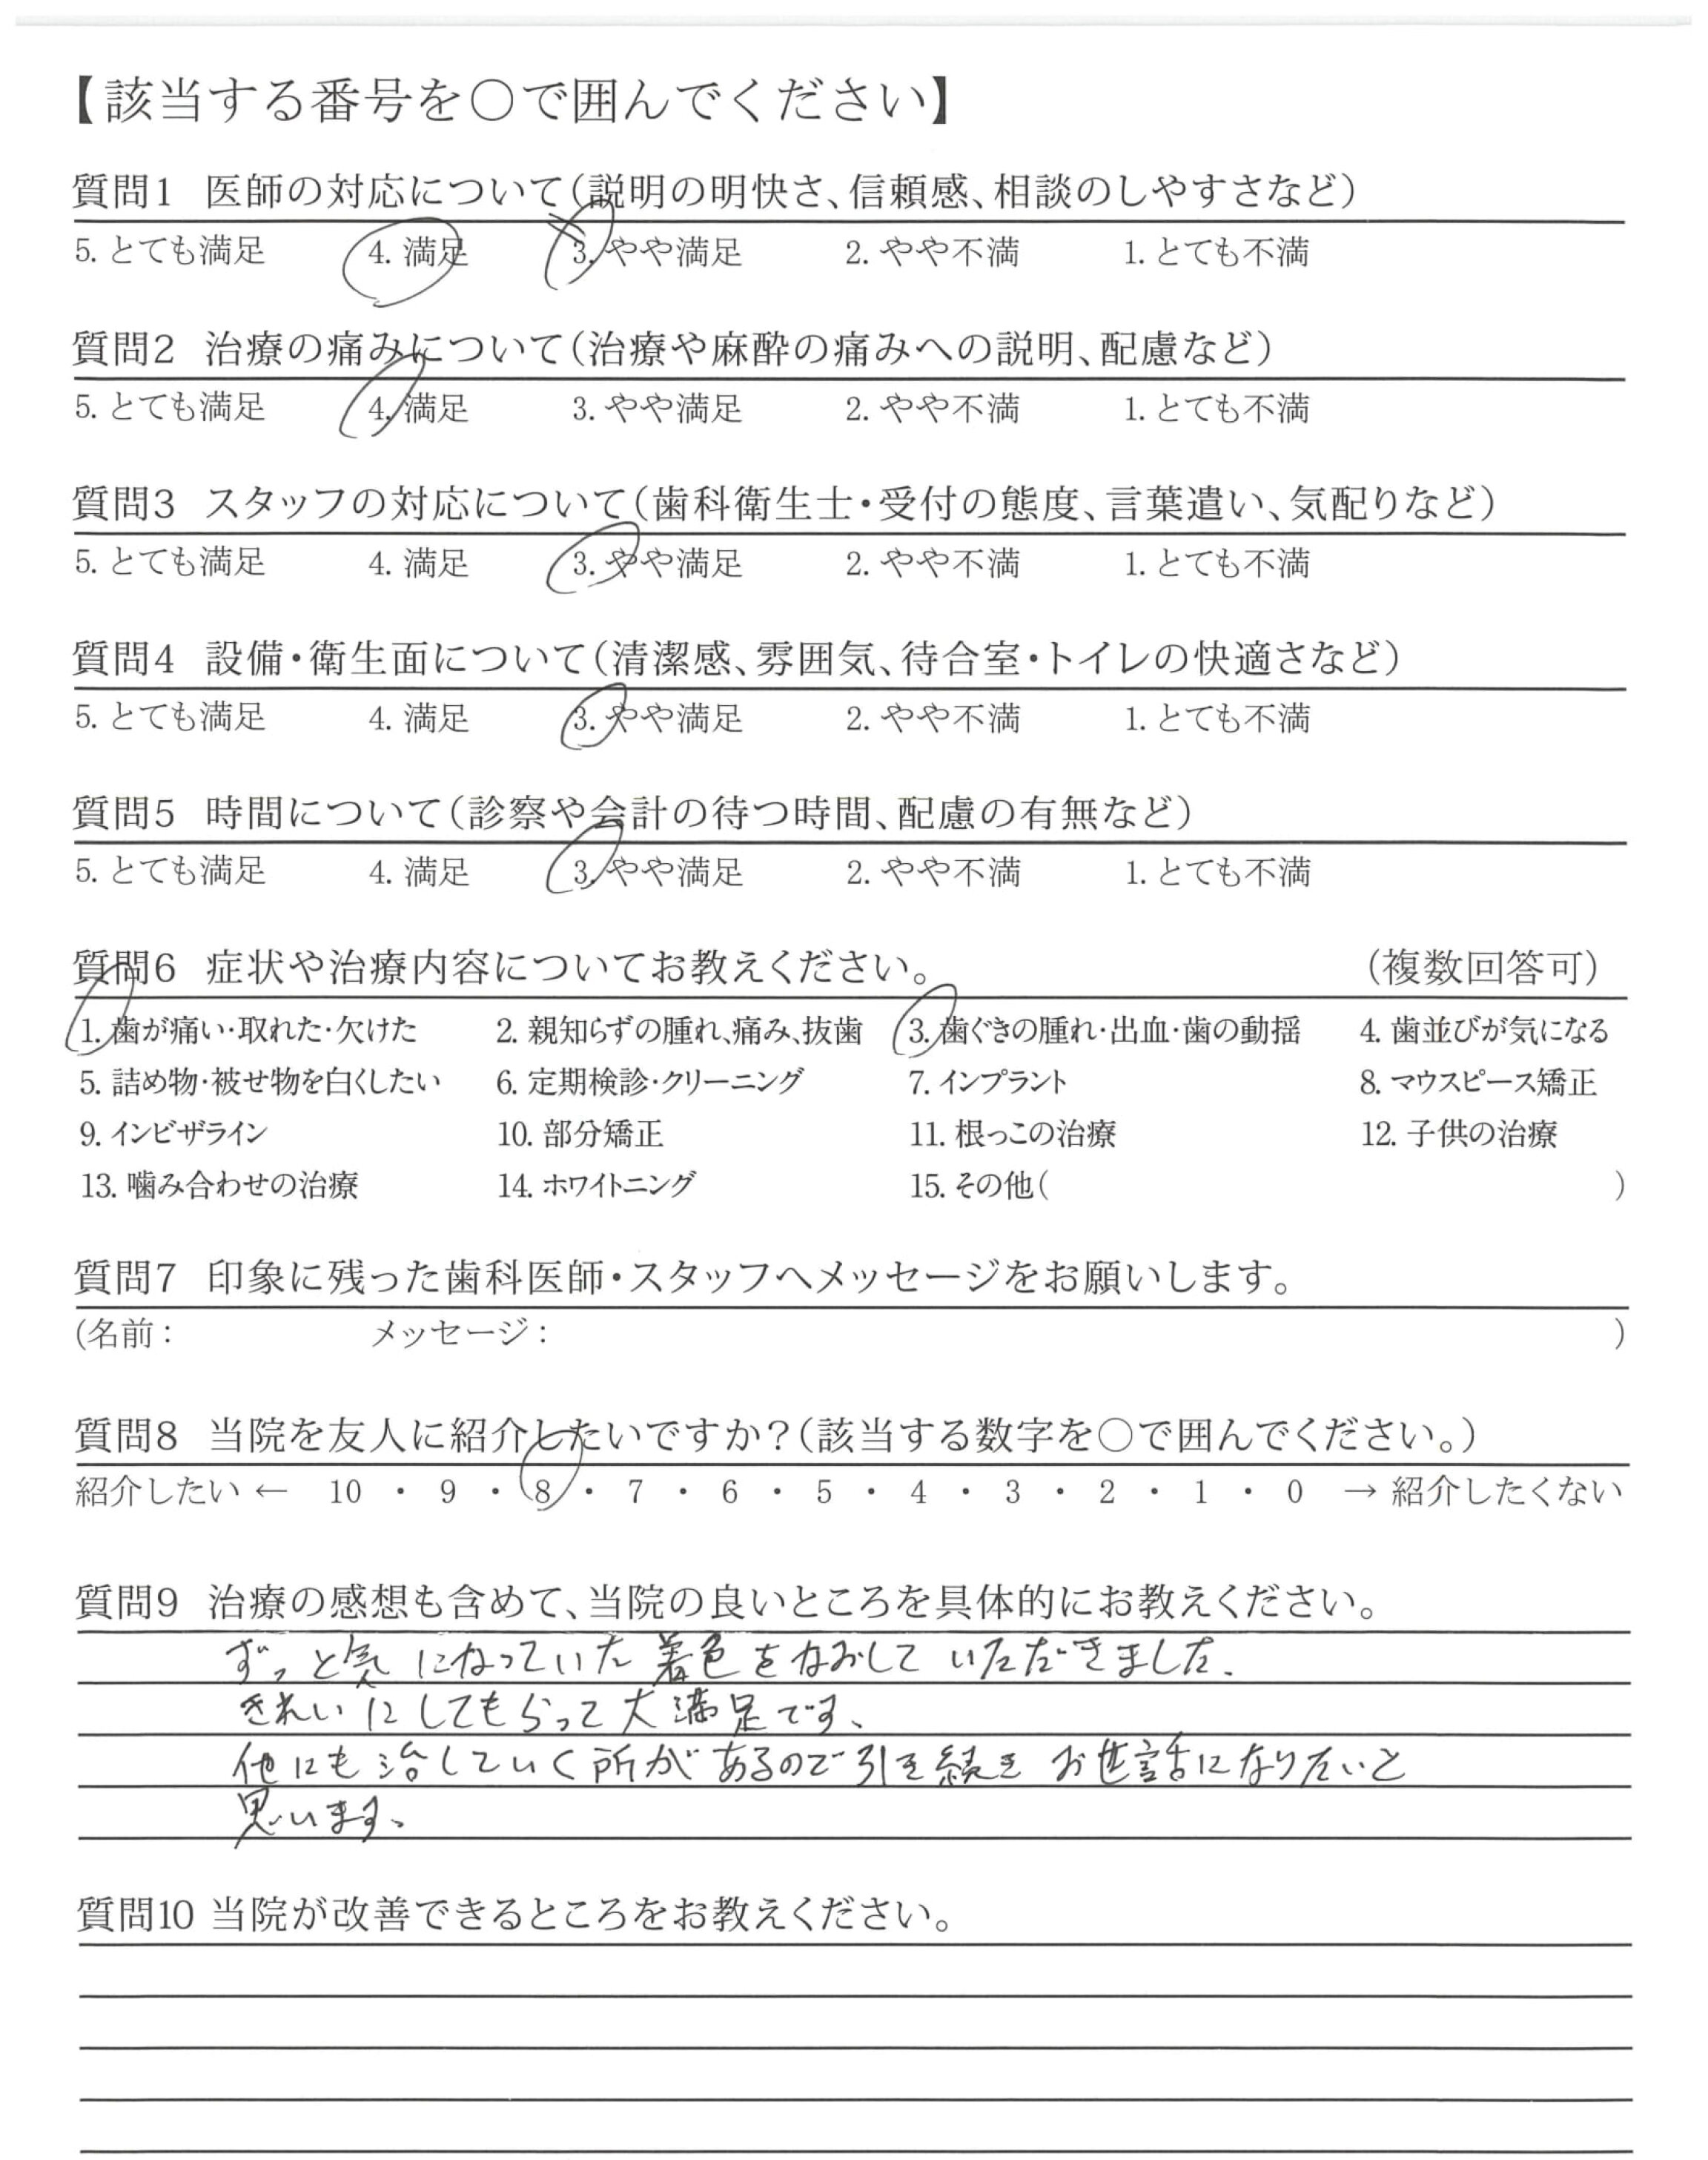 【該当する番号を○で囲んでください】
質問1 医師の対応について（説明の明快さ、信頼感、相談のしやすさなど）
5. とても満足 4. 満足 3. やや満足 2. やや不満 1. とても不満
質問2 治療の痛みについて（治療や麻酔の痛みへの説明、配慮など）
5. とても満足 4. 満足 3. やや満足 2. やや不満 1. とても不満
質問3 スタッフの対応について（歯科衛生士・受付の態度、言葉遣い、気配りなど）
5. とても満足 4. 満足 3. やや満足 2. やや不満 1. とても不満
質問4 設備・衛生面について（清潔感、雰囲気、待合室・トイレの快適さなど）
5. とても満足 4. 満足 3. やや満足 2. やや不満 1. とても不満
質問5 時間について（診察や会計の待つ時間、配慮の有無など）
5. とても満足 4. 満足 3. やや満足 2. やや不満 1. とても不満
質問6 症状や治療内容についてお教えください。 （複数回答可）
1. 歯が痛い・取れた・欠けた 2. 親知らずの腫れ、痛み、抜歯 3. 歯ぐきの腫れ・出血・歯の動揺 4. 歯並びが気になる
5. 詰め物・被せ物を白くしたい 6. 定期検診・クリーニング 7. インプラント 8. マウスピース矯正
9. インビザライン 10. 部分矯正 11. 根っこの治療 12. 子供の治療
13. 噛み合わせの治療 14. ホワイトニング 15. その他（ ）
質問7 印象に残った歯科医師・スタッフへメッセージをお願いします。
（名前： メッセージ： ）
質問8 当院を友人に紹介したいですか？（該当する数字を○で囲んでください。）
紹介したい ← 10 ・ 9 ・ 8 ・ 7 ・ 6 ・ 5 ・ 4 ・ 3 ・ 2 ・ 1 ・ 0 → 紹介したくない
質問9 治療の感想も含めて、当院の良いところを具体的にお教えください。
ずっと気になっていた着色をなおしていただきました。
きれいにしてもらって大満足です、
他にも治していく所があるので引き続きお世話になりたいと
思います、
質問10 当院が改善できるところをお教えください。